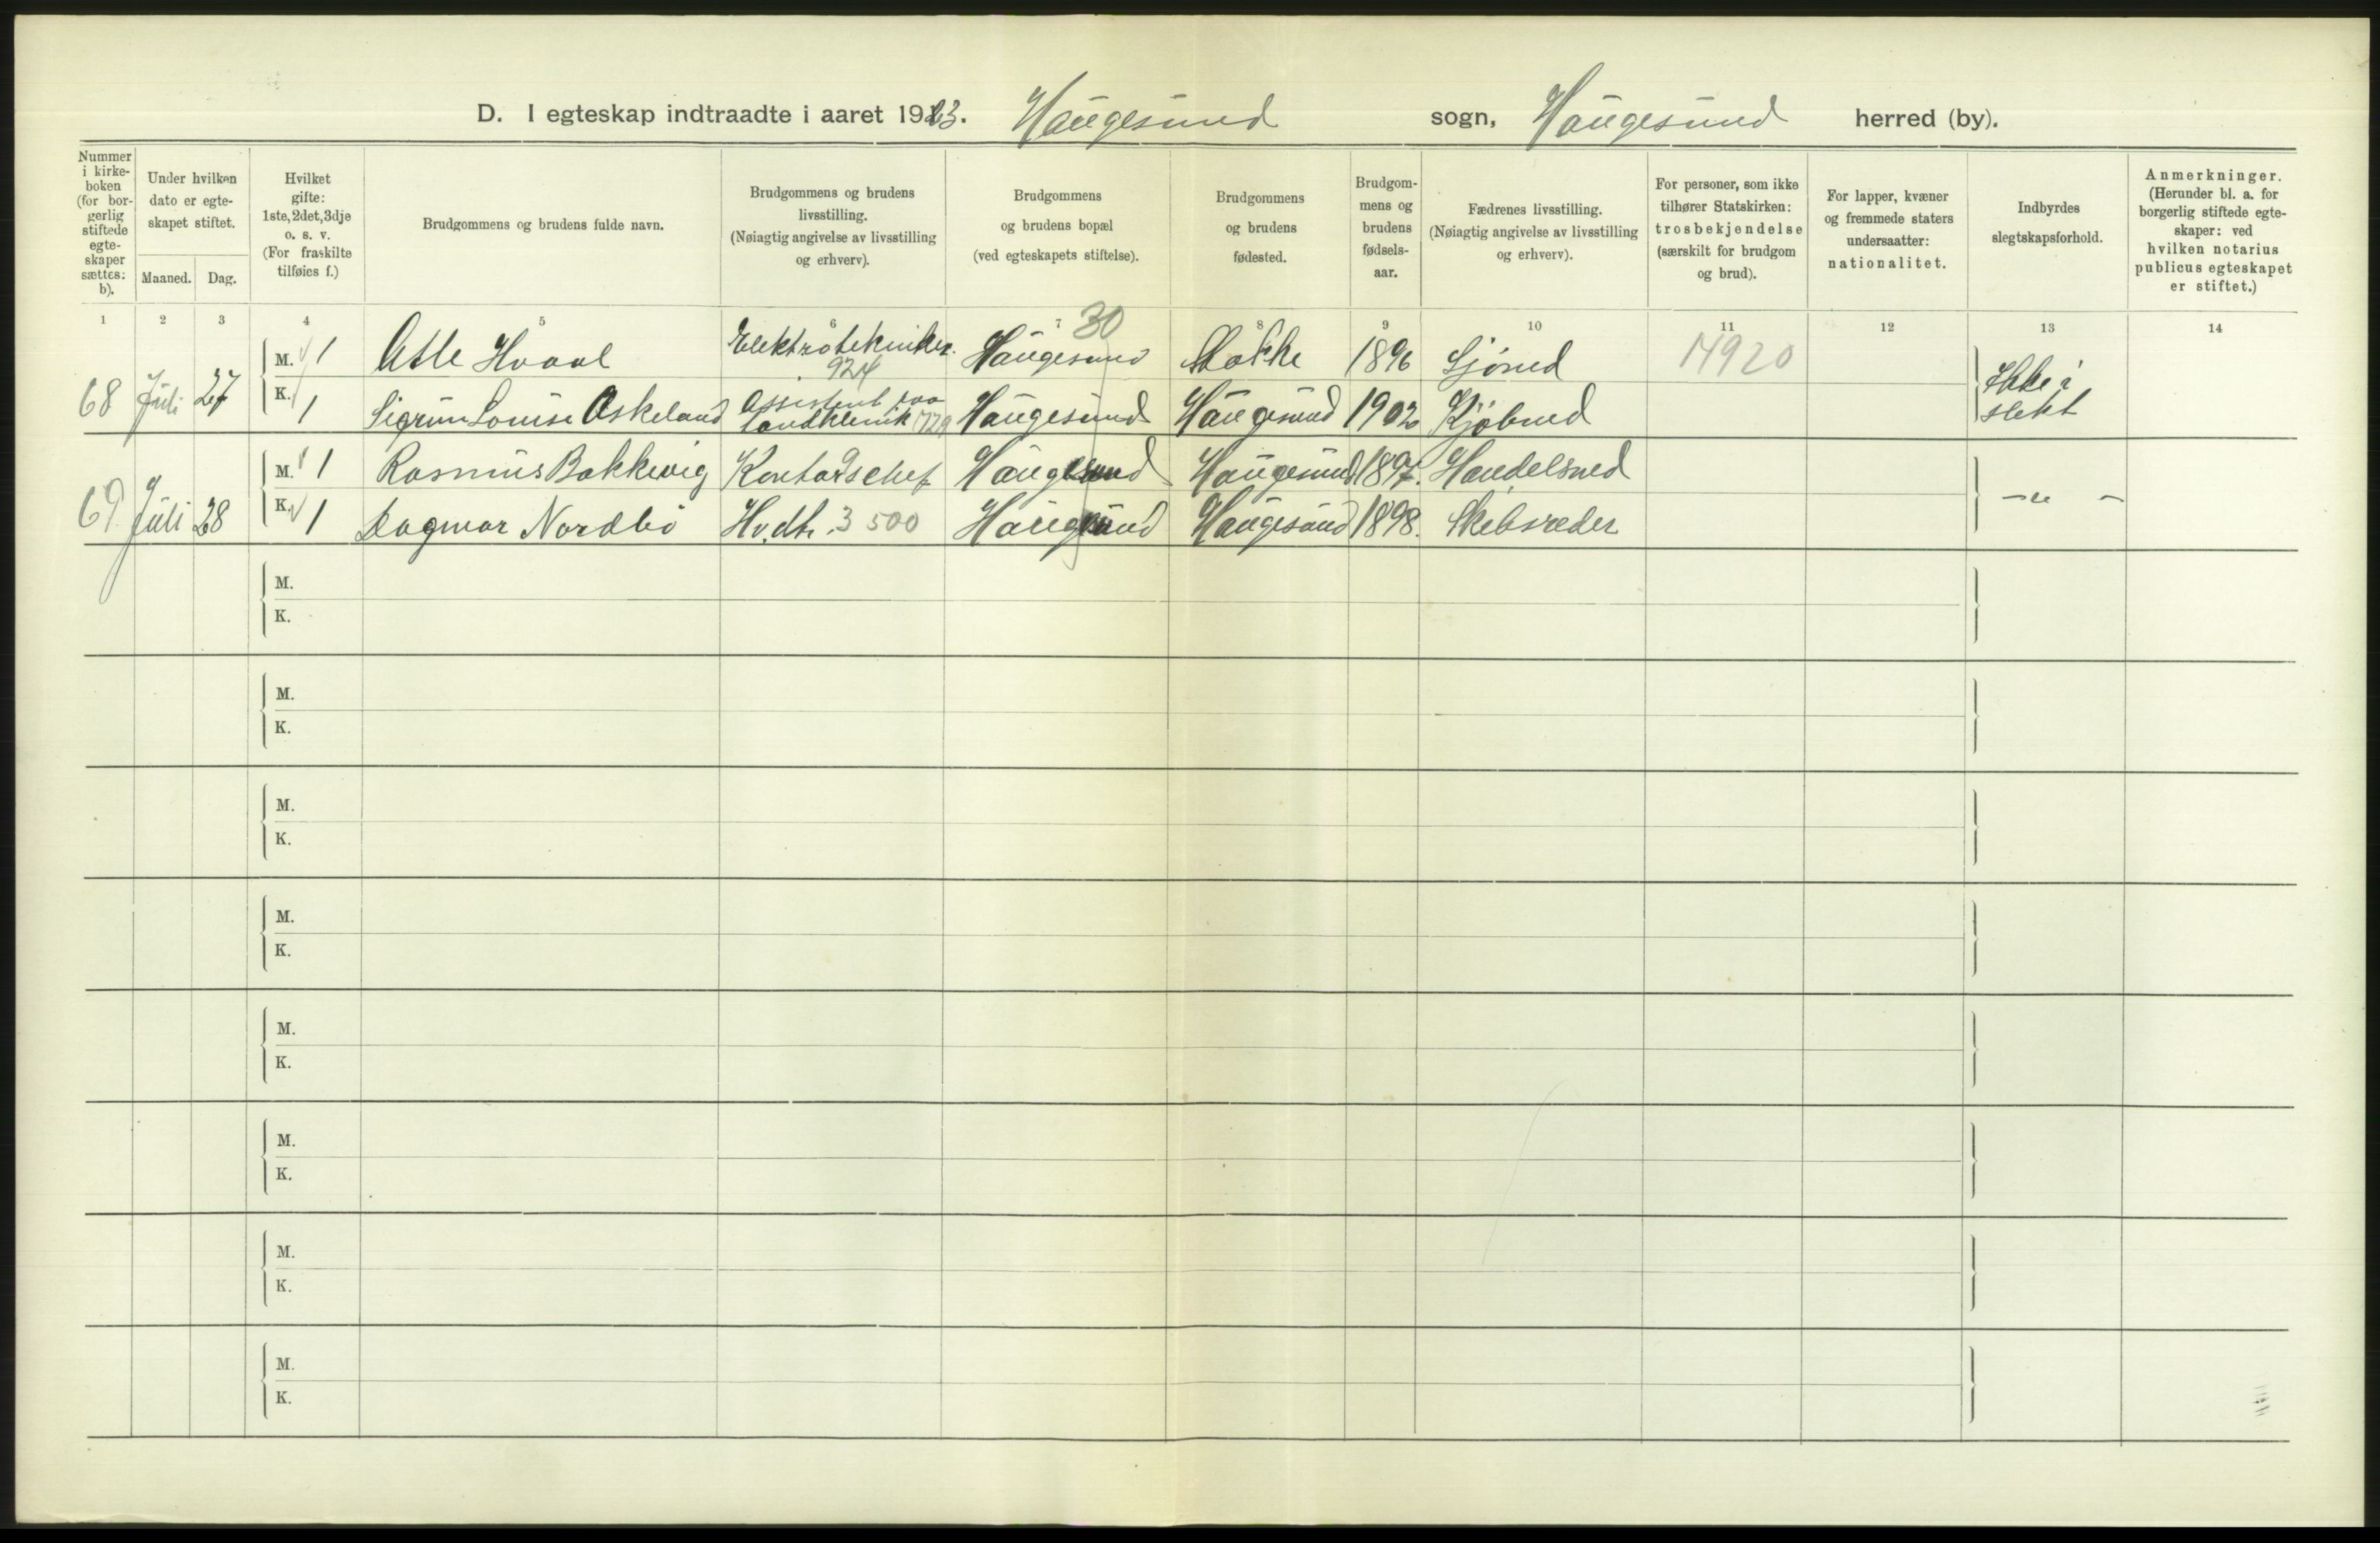 D. I egteskap indtraadte i aaret 1923. Haugesund sogn, Haugesund herred (by).
Nummer i kirke-boken (for bor-gerlig stiftede egte-skaper sættes: b).
Under hvilken dato er egte-skapet stiftet.
Maaned. Dag.
Hvilket gifte: 1ste, 2det, 3dje o. s. v. (For fraskilte tilføies f.)
Brudgommens og brudens fulde navn.
Brudgommens og brudens livsstilling. (Nøiagtig angivelse av livsstilling og erhverv).
Brudgommens og brudens bopæl (ved egteskapets stiftelse).
Brudgommens og brudens fødested.
Brudgom-mens og brudens fødsels-aar.
Fædrenes livsstilling. (Nøiagtig angivelse av livsstilling og erhverv).
For personer, som ikke tilhører Statskirken: trosbekjendelse (særskilt for brudgom og brud).
For lapper, kvæner og fremmede staters undersaatter: nationalitet.
Indbyrdes slegtskapsforhold.
Anmerkninger. (Herunder bl. a. for borgerlig stiftede egte-skaper: ved hvilken notarius publicus egteskapet er stiftet.)
1 2 3 4 5 6 7 8 9 10 11 12 13 14
30
68 Juli 27
M. 1 Atle Hvaal Elektrotekniker. 924 Haugesund Stokke 1896 Sjömd 14920
K. 1 Sigrun Louise Askeland Assistent paa Tandklinik 729 Haugesund Haugesund 1902 Kjöbmd
Ikke i slekt
69. Juli 28
M. 1 Rasmus Bakkevig Kontorschef Haugesund Haugesund 1897. Handelsmd
K. 1 Dagmar Nordbö Hv.dt. 3500 Haugesund Haugesund 1898. Skibsreder
-"-
M.
K.
M.
K.
M.
K.
M.
K.
M.
K.
M.
K.
M.
K.
M.
K.